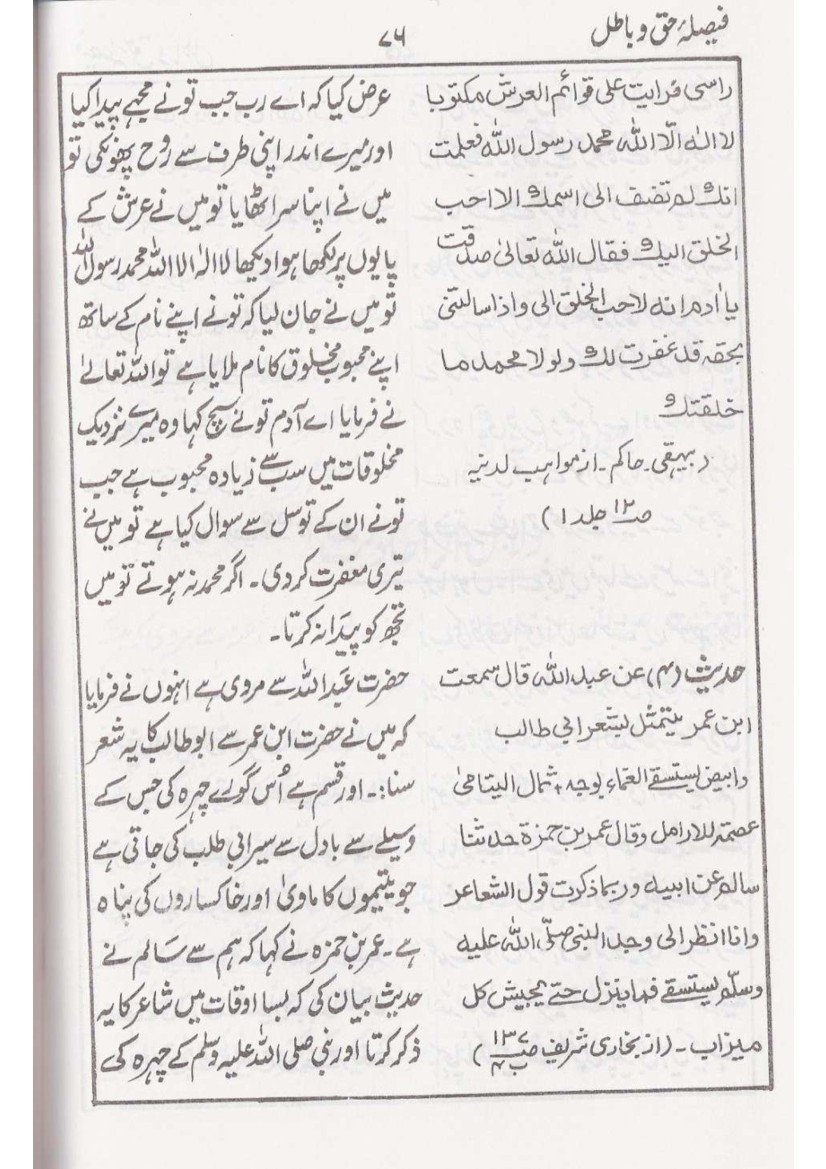 فیصلۂ حق و باطل
۷۶
راسی فرایت علی قوائم العرش مکتوبا
لا الٰہ الّا اللّٰہ محمد رسول اللّٰہ فعلمت
انک لم تضف الی اسمک الا احب
الخلق الیک فقال اللّٰہ تعالیٰ صدقت
یا اٰدم انہ لاحب الخلق الی واذا سالتنی
بحقہ قد غفرت لک ولولا محمد ما
خلقتک
(بیہقی۔ حاکم۔ از مواہب لدنیہ
صـ۱۲ جلد ۱)
حدیث (۴) عن عبد اللّٰہ قال سمعت
ابن عمر یتمثل بشعر ابی طالب
وابیض یستسقے الغماء بوجہ ٭ ثمال الیتامیٰ
عصمۃ للارامل وقال عمر بن حمزۃ حدثنا
سالم عن ابیہ وربما ذکرت قول الشعاعر
وانا انظر الی وجہ النبی صلّی اللّٰہ علیہ
وسلّم یستسقے فما ینزل حتے یجیش کل
میزاب۔ (از بخاری شریف صـ۱۳۷)
عرض کیا کہ اے رب جب تو نے مجھے پیدا کیا
اور میرے اندر اپنی طرف سے روح پھونکی تو
میں نے اپنا سر اٹھایا تو میں نے عرش کے
پایوں پر لکھا ہوا دیکھا لا الہٰ الا اللّٰہ محمد رسول اللّٰہ
تو میں نے جان لیا کہ تو نے اپنے نام کے ساتھ
اپنے محبوب مخلوق کا نام ملایا ہے تو اللّٰہ تعالےٰ
نے فرمایا اے آدم تو نے سچ کہا وہ میرے نزدیک
مخلوقات میں سب سے زیادہ محبوب ہے جب
تو نے ان کے توسل سے سوال کیا ہے تو میں نے
تیری مغفرت کر دی۔ اگر محمد نہ ہوتے تو میں
تجھ کو پیدا نہ کرتا۔
حضرت عبد اللّٰہ سے مروی ہے انہوں نے فرمایا
کہ میں نے حضرت ابن عمر سے ابو طالب کا یہ شعر
سنا:۔ اور قسم ہے اُس گورے چہرہ کی جس کے
وسیلے سے بادل سے سیرابی طلب کی جاتی ہے
جو یتیموں کا ماویٰ اور خاکساروں کی پناہ
ہے۔ عمر بن حمزہ نے کہا کہ ہم سے سالم نے
حدیث بیان کی کہ بسا اوقات میں شاعر کا یہ
ذکر کرتا اور نبی صلی اللّٰہ علیہ وسلم کے چہرہ کی